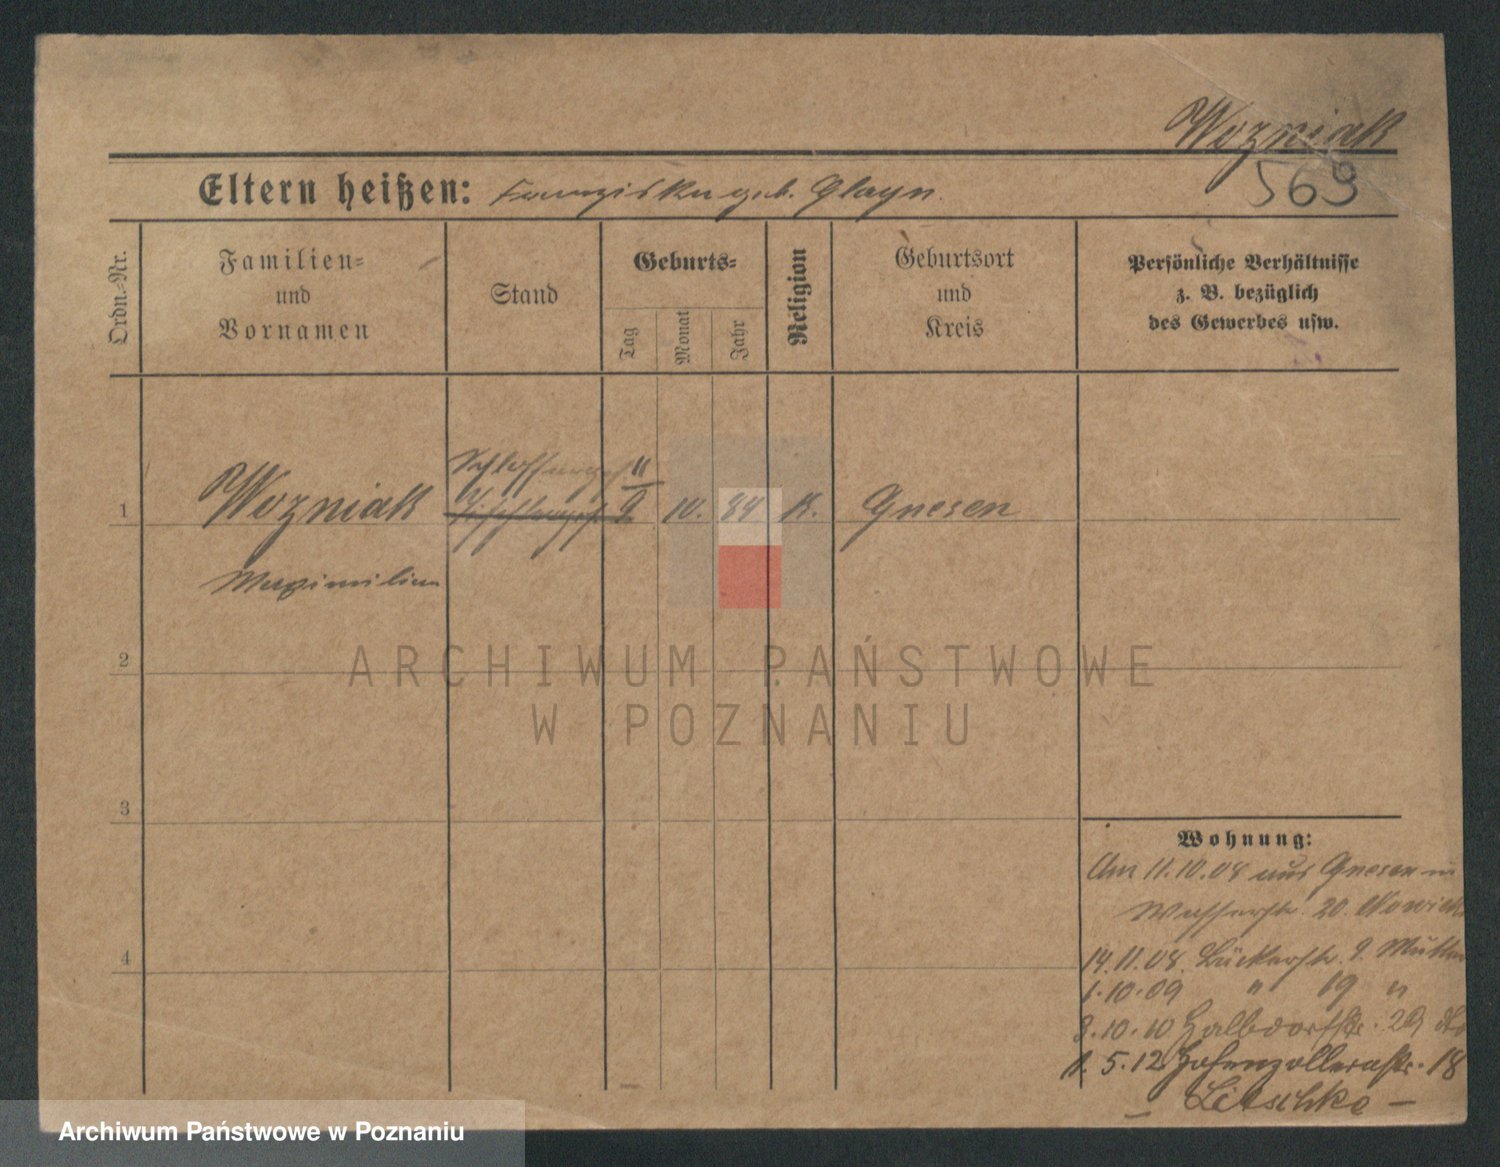 Wozniak
569
Eltern heißen: Franziska geb. Glazyn.
Ordn.-Nr.
Familien-
und
Vornamen
Stand
Geburts-
Tag
Monat
Jahr
Religion
Geburtsort
und
Kreis
Persönliche Verhältnisse
z. B. bezüglich
des Gewerbes usw.
Schlosserges
11
1 Wozniak 9. 10. 84 K. Gnesen
Maximilian
2
3
4
Wohnung:
Am 11.10.08 aus Gnesen in
Wasserstr. 20. Nowick
14.11.08. Bäckerstr. 9. Mutter
1.10.09 " 19 "
3.10.10 Halbdorfstr. 29
1.5.12 Hohenzollernstr. 18
– Litschke –
ARCHIWUM PAŃSTWOWE
W POZNANIU
Archiwum Państwowe w Poznaniu